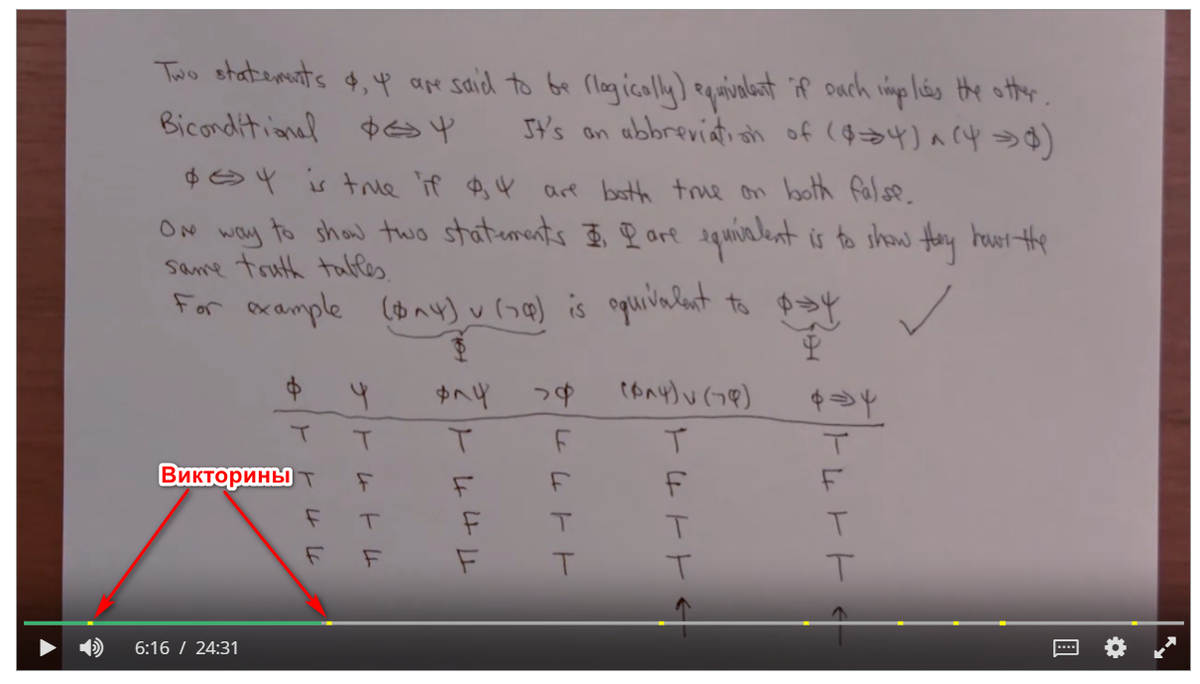 Two statements ϕ, ψ are said to be (logically) equivalent if each implies the other.
Biconditional ϕ⇔ψ It's an abbreviation of (ϕ⇒ψ)∧(ψ⇒ϕ)
ϕ⇔ψ is true if ϕ, ψ are both true or both false.
One way to show two statements Φ, Ψ are equivalent is to show they have the
same truth tables.
For example (ϕ∧ψ)∨(¬ϕ) is equivalent to ϕ⇒ψ ✓
Φ Ψ
ϕ ψ ϕ∧ψ ¬ϕ (ϕ∧ψ)∨(¬ϕ) ϕ⇒ψ
T T T F T T
Викторины
T F F F F F
F T F T T T
F F F T T T
↑ ↑
6:16 / 24:31